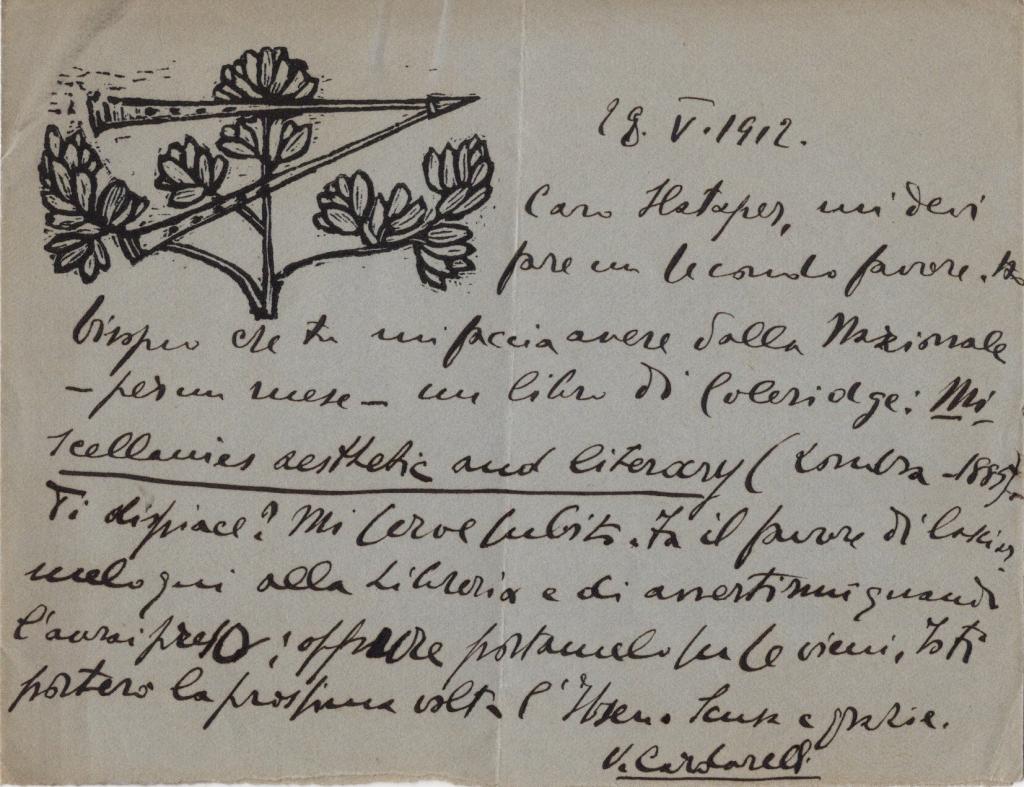 28. V. 1912.
Caro Slataper, mi devi
fare un secondo favore. Ho
bisogno che tu mi faccia avere dalla Nazionale
– per un mese – un libro di Coleridge: Mi-
scellanies aesthetic and literary (Londra - 1885).
Ti dispiace? Mi serve subito. Fa il favore di lasciar
melo qui alla Libreria e di avvertirmi quando
l'avrai preso; oppure portamelo su se vieni. Io ti
porterò la prossima volta l'Ibsen. Scusa e grazie.
V. Cardarelli